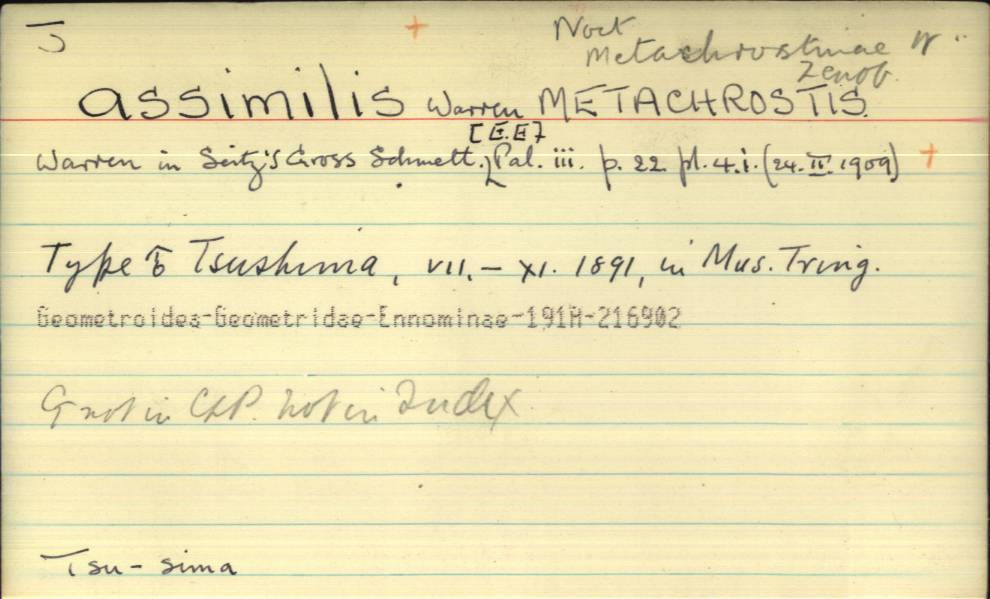 J
Noct
Metachrostinae
Zenob.
assimilis Warren METACHROSTIS.
[E.E]
Warren in Seitz's Gross Schmett. Pal. iii. p. 22. pl. 4. i. (24. II. 1909)
Type Tsushima, VII. – XI. 1891, in Mus. Tring.
Geometroidea-Geometridae-Ennominae-191A-216902
G not in CLP. not in Index.
Tsu-sima